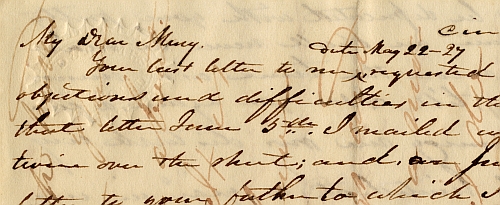 Cin
My Dear Mary. date May 22-27
Your last letter to me, requested
objections and difficulties in the
that letter June 5th. I mailed a
twice over the sheet; and, on Ju
letter to your father to which I